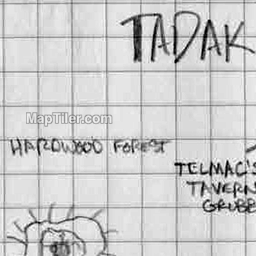 TADAK
MapTiler.com
HARDWOOD FOREST
TELMAC'S
TAVERN
GRUBB